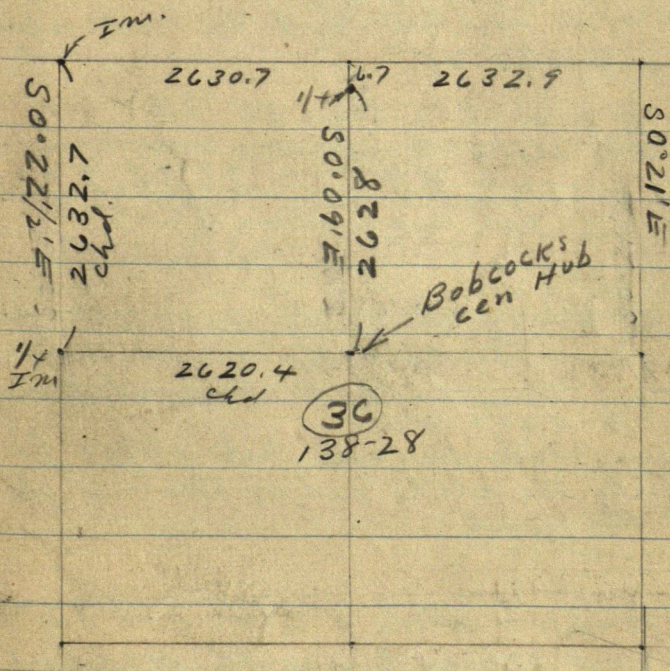 Im.
2630.7
6.7
2632.9
1/4
S0.22 1/2' E
2632.7
chd.
S0.09' E
2628
S0°21' E
Bobcocks
cen Hub
1/4
Im
2620.4
chd
36
138-28